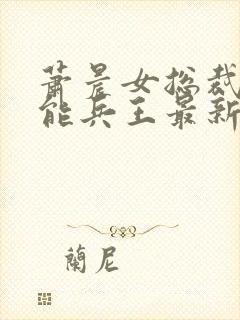 萧晨女总裁
能兵王最新
蘭尼